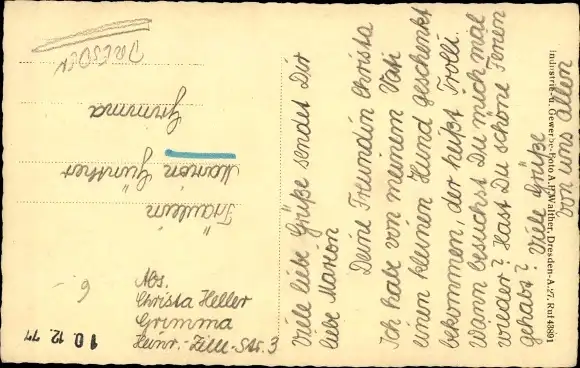 DRESDEN
Fräulein
Marion Günther
Grimma
Abs.
Christa Heller
Grimma
Heinr.-Zille-Str. 3
6.
10. 12. 77
Viele liebe Grüße sendet Dir
liebe Marion
Deine Freundin Christa
Ich habe von meinem Vati
einen kleinen Hund geschenkt
bekommen, der heißt Trolli.
Wann besuchst Du mich mal
wieder? Hast Du schöne Ferien
gehabt? Viele Grüße
von uns allen
Industrie- u. Gewerbe-Foto A.P. Walther, Dresden-A. 27, Ruf 43891